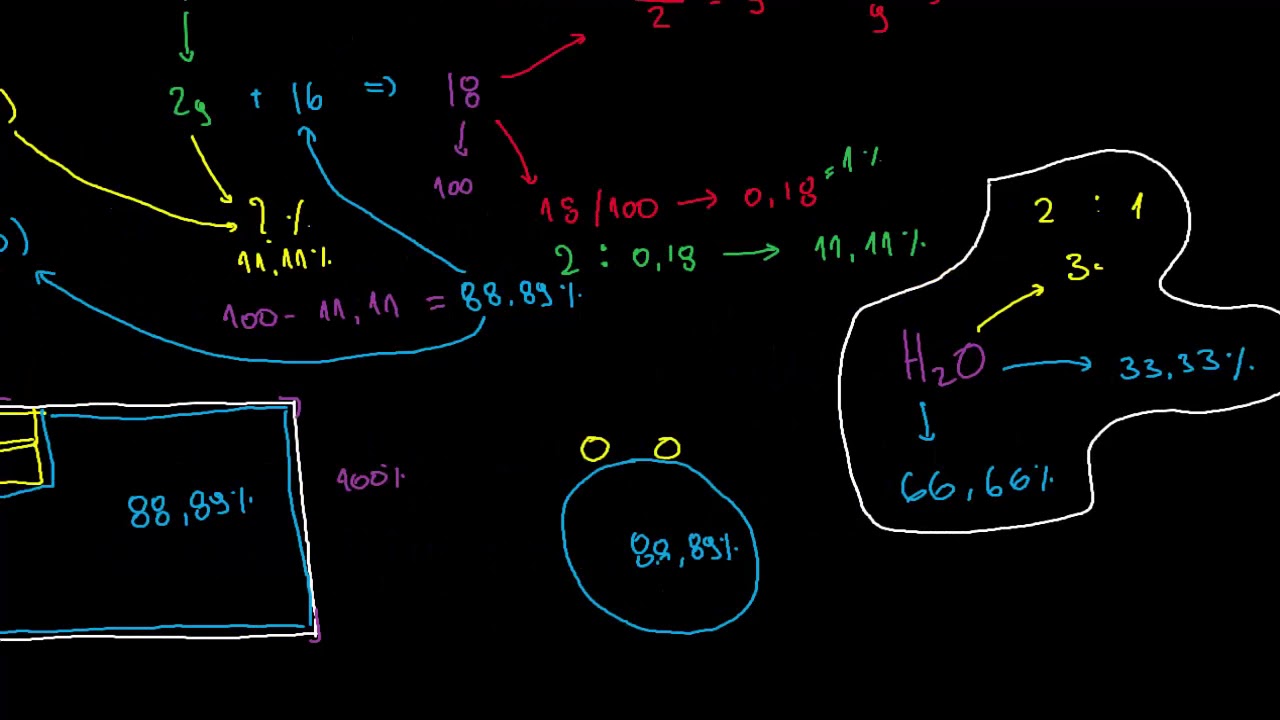 2
2g + 16 => 18
100
18/100 → 0,18 = 1%
? %
11,11%
2 : 0,18 → 11,11%
100 - 11,11 = 88,89%
2 : 1
3
H₂O → 33,33%
66,66%
88,89%
100%
88,89%